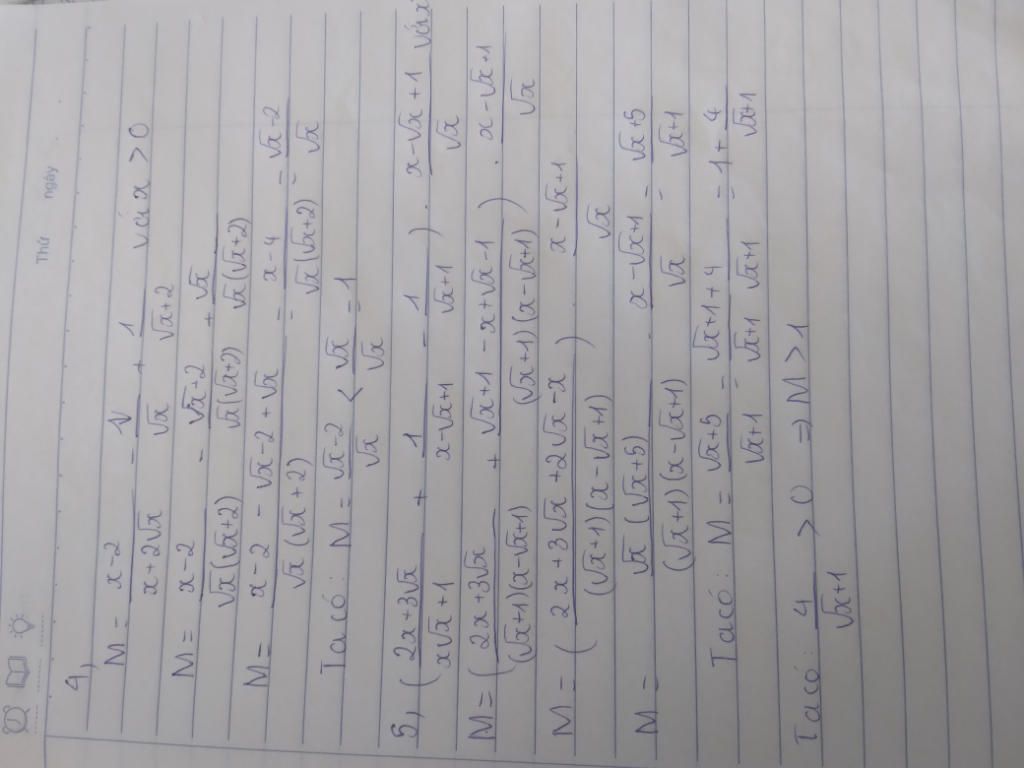 Thứ ngày
4,
M = x-2/x+2√x - 1/√x + 1/√x+2 với x > 0
M = x-2/√x(√x+2) - √x+2/√x(√x+2) + √x/√x(√x+2)
M = x-2-√x-2+√x/√x(√x+2) = x-4/√x(√x+2) = √x-2/√x
Ta có: M = √x-2/√x < √x/√x = 1
5, (2x+3√x/x√x+1 + 1/x-√x+1 - 1/√x+1) . x-√x+1/√x với x
M = (2x+3√x/(√x+1)(x-√x+1) + √x+1-x+√x-1/(√x+1)(x-√x+1)) . x-√x+1/√x
M = (2x+3√x+2√x-x/(√x+1)(x-√x+1)) . x-√x+1/√x
M = √x(√x+5)/(√x+1)(x-√x+1) . x-√x+1/√x = √x+5/√x+1
Ta có: M = √x+5/√x+1 = √x+1+4/√x+1 = 1+4/√x+1
Ta có: 4/√x+1 > 0 => M > 1